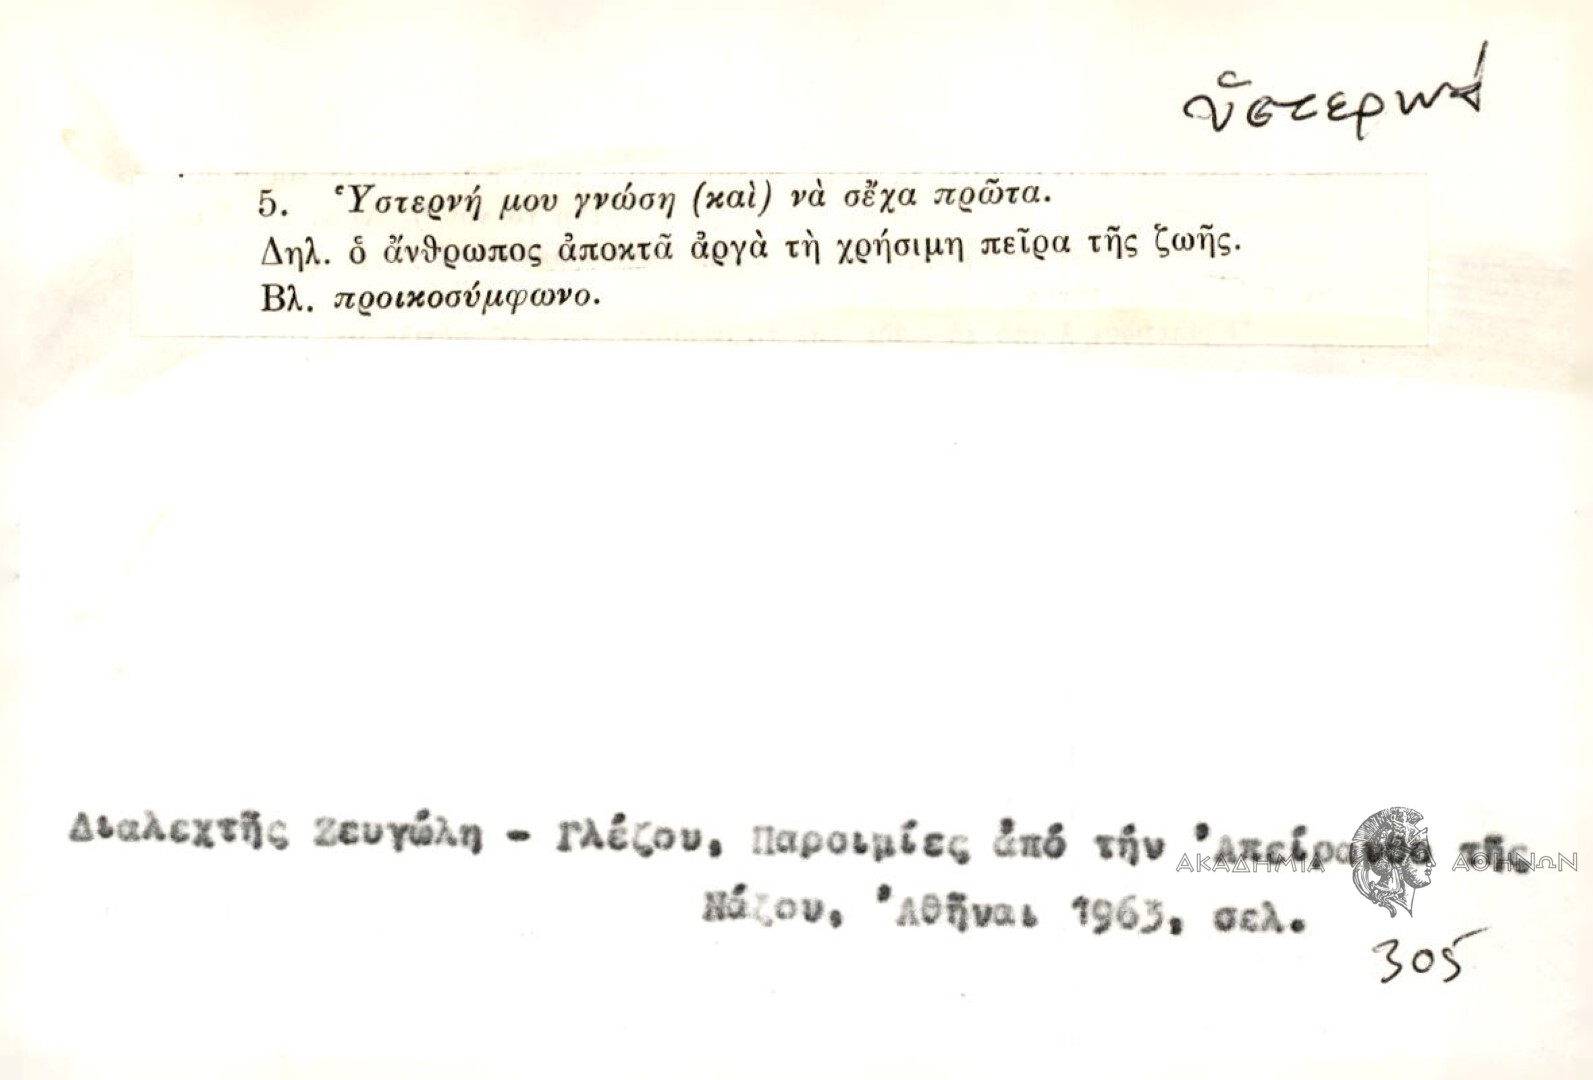 ὕστερνά
5. Ὑστερνή μου γνώση (καὶ) νὰ σἔχα πρῶτα.
Δηλ. ὁ ἄνθρωπος ἀποκτᾶ ἀργὰ τὴ χρήσιμη πεῖρα τῆς ζωῆς.
Βλ. προικοσύμφωνο.
Διαλεχτῆς Ζευγώλη - Γλέζου, Παροιμίες ἀπό τήν Ἀπείρανθο τῆς
ΑΚΑΔΗΜΙΑ ΑΘΗΝΩΝ
Νάξου, Ἀθῆναι 1963, σελ.
305